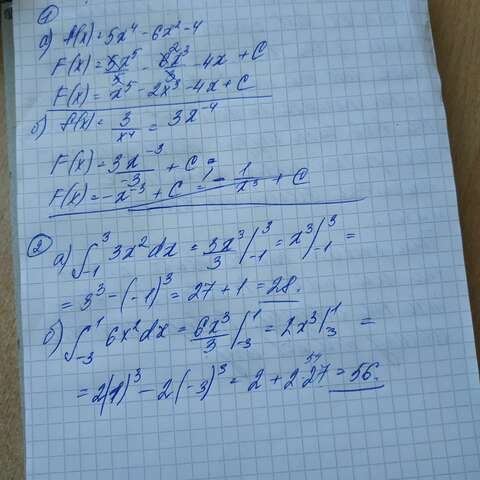 ①
а) f(x)=5x⁴-6x²-4
F(x)=5x⁵/5 - 6x³/3 - 4x + C
F(x)= x⁵ - 2x³ - 4x + C
б) f(x)= 3/x⁴ = 3x⁻⁴
F(x)= 3x⁻³/-3 + C =
F(x)= -x⁻³ + C = - 1/x³ + C
② а) ∫₋₁³ 3x²dx = 3x³/3 |₋₁³ = x³|₋₁³ =
= 3³ - (-1)³ = 27 + 1 = 28.
б) ∫₋₃¹ 6x²dx = 6x³/3 |₋₃¹ = 2x³|₋₃¹ =
= 2(1)³ - 2(-3)³ = 2 + 2·27 = 56.